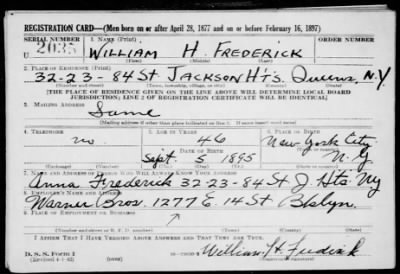 REGISTRATION CARD—(Men born on or after April 28, 1877 and on or before February 16, 1897)
SERIAL NUMBER 1. NAME (Print)
U 2035 WILLIAM H. FREDERICK
(First) (Middle) (Last)
2. PLACE OF RESIDENCE (Print)
32-23-84 St JACKSON HTS. Queens, N.Y
(Number and street) (Town, township, village, or city) (County) (State)
[THE PLACE OF RESIDENCE GIVEN ON THE LINE ABOVE WILL DETERMINE LOCAL BOARD
JURISDICTION; LINE 2 OF REGISTRATION CERTIFICATE WILL BE IDENTICAL]
3. MAILING ADDRESS
Same
[Mailing address if other than place indicated on line 2. If same insert word same]
4. TELEPHONE 5. AGE IN YEARS 6. PLACE OF BIRTH
no 46 New York City
DATE OF BIRTH
Sept. 5 1895 N.Y
(Exchange) (Number) (Mo.) (Day) (Yr.) (State or country)
7. NAME AND ADDRESS OF PERSON WHO WILL ALWAYS KNOW YOUR ADDRESS
Anna Frederick 32-23-84 St J. Hts. Ny
8. EMPLOYER'S NAME AND ADDRESS
Warner Bros. 1277 E. 14 St Bklyn.
9. PLACE OF EMPLOYMENT OR BUSINESS
(Number and street or R. F. D. number) (Town) (County) (State)
I AFFIRM THAT I HAVE VERIFIED ABOVE ANSWERS AND THAT THEY ARE TRUE.
D. S. S. Form 1
(Revised 4-1-42) William H Frederick